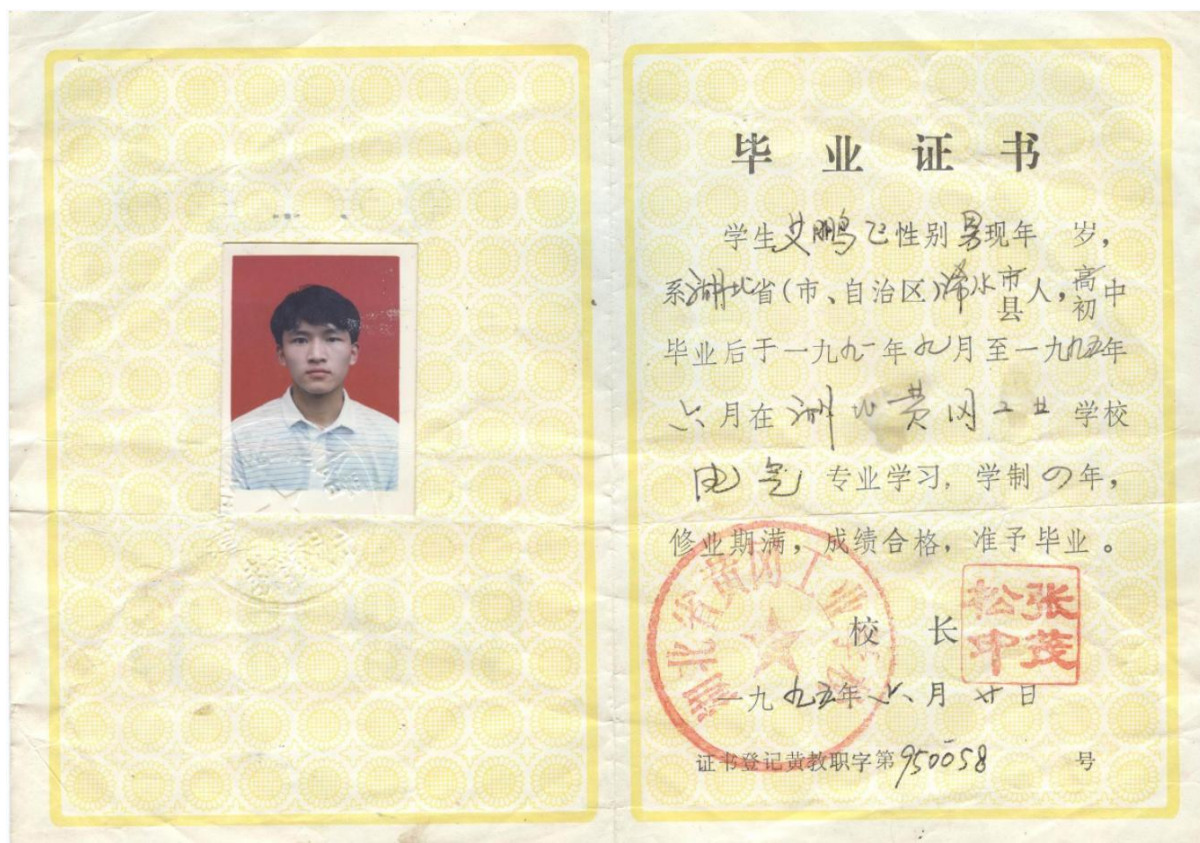 毕业证书
学生艾鹏飞性别男现年 岁,
系湖北省(市、自治区)浠水市县人,高初中
毕业后于一九九一年九月至一九九五年
六月在湖北黄冈工业学校
电气专业学习,学制四年,
修业期满,成绩合格,准予毕业。
湖北省黄冈工业学校
校长
张茂松印
一九九五年六月廿日
证书登记黄教职字第950058号